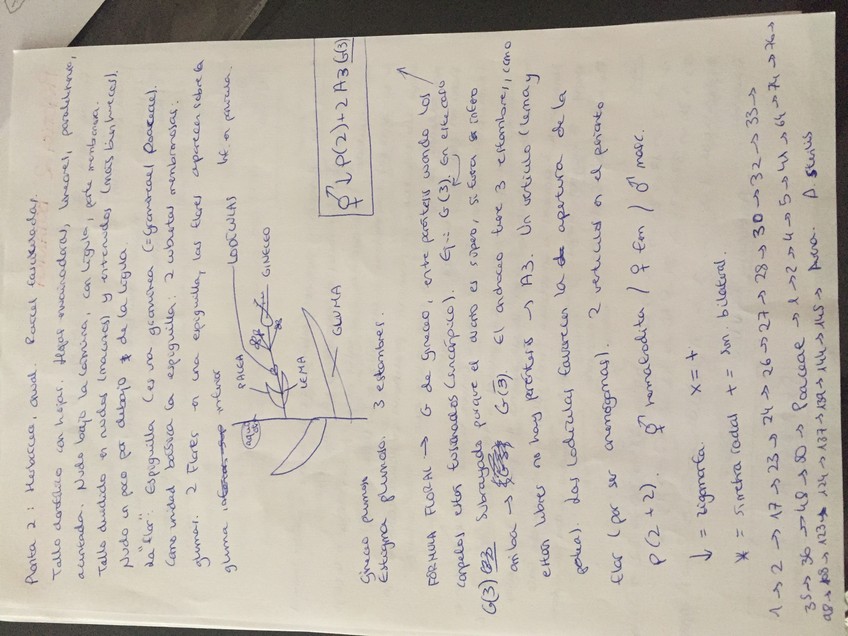 Planta 2: Herbácea, anual. Raíces fasciculadas.
Tallo dostélico con hojas. Hojas envainadoras, lineares, paralelinervia,
acuminada. Nudo bajo la lámina, con lígula, parte membranosa.
Tallo dividido en nudos (macizos) y entrenudos (más bien huecos).
Nudo un poco por debajo de la lígula.
"La flor": Espiguilla (es una gramínea (=Gramineae) Poaceae).
Como unidad básica la espiguilla: 2 cubiertas membranosas:
glumas. 2 Flores en una espiguilla, las flores aparecen sobre la
gluma inferior
PALEA
LODÍCULAS
GINECEO
LEMA
GLUMA
Gineceo
Estigma plumoso. 3 estambres.
⚥ ↓ P(2)+2 A3 G(3)
FÓRMULA FLORAL → G de Gineceo, entre paréntesis cuando los
carpelos están fusionados (sincárpico). G = G(3). En este caso
G(3) Subrayado porque el ovario es súpero, si fuera ínfero
arriba → G(3). El androceo tiene 3 estambres, como
están libres no hay paréntesis → A3. Un verticilo (lema y
pálea). Las lodículas favorecen la apertura de la
flor (por ser anemógamas). 2 verticilos en el perianto
P(2+2). ⚥ hermafrodita / ♀ fem / ♂ masc.
↓ = zigomorfa X = +
* = Simetría radial + = Sim. bilateral.
1 → 2 → 17 → 23 → 24 → 26 → 27 → 28 → 30 → 32 → 33 →
35 → 36 → 48 → 50 → Poaceae → 1 → 2 → 4 → 5 → 41 → 64 → 74 → 76 →
98 → 108 → 123 → 124 → 137 → 139 → 144 → 145 → Avena. A. sterilis